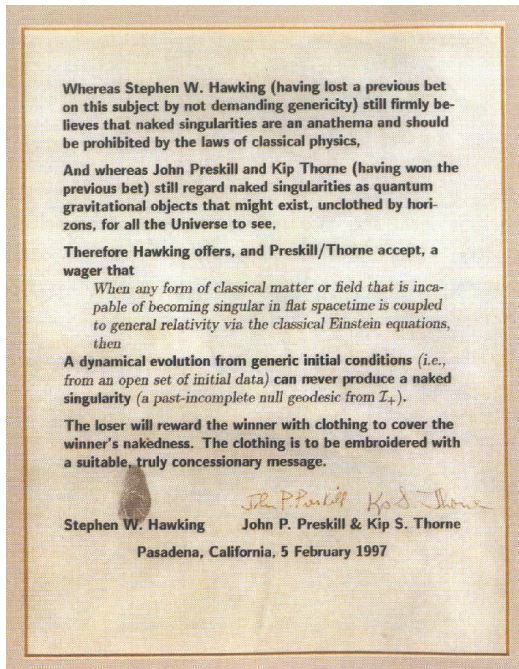 Whereas Stephen W. Hawking (having lost a previous bet
on this subject by not demanding genericity) still firmly be-
lieves that naked singularities are an anathema and should
be prohibited by the laws of classical physics,
And whereas John Preskill and Kip Thorne (having won the
previous bet) still regard naked singularities as quantum
gravitational objects that might exist, unclothed by hori-
zons, for all the Universe to see,
Therefore Hawking offers, and Preskill/Thorne accept, a
wager that
When any form of classical matter or field that is inca-
pable of becoming singular in flat spacetime is coupled
to general relativity via the classical Einstein equations,
then
A dynamical evolution from generic initial conditions (i.e.,
from an open set of initial data) can never produce a naked
singularity (a past-incomplete null geodesic from I₊).
The loser will reward the winner with clothing to cover the
winner's nakedness. The clothing is to be embroidered with
a suitable, truly concessionary message.
John P Preskill Kip S. Thorne
Stephen W. Hawking John P. Preskill & Kip S. Thorne
Pasadena, California, 5 February 1997